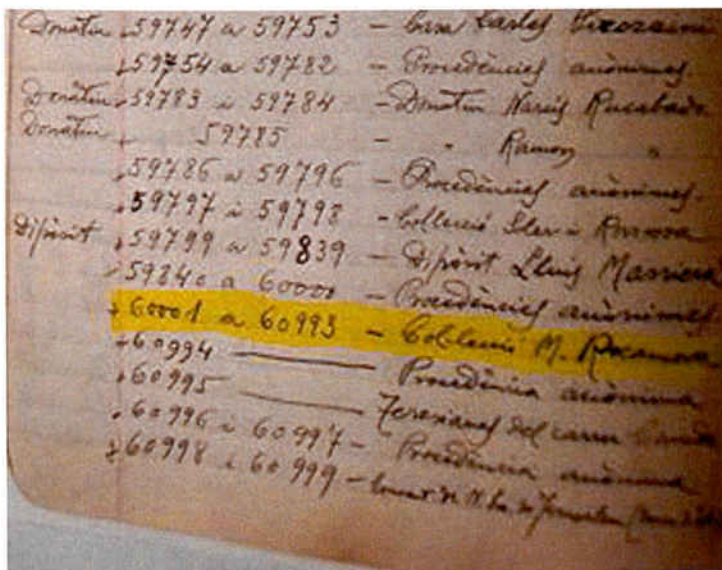 Donatiu 59747 a 59753 - Casa Carles
59754 a 59782 - Procedències anònimes.
Donatiu 59783 i 59784 - Donatiu Narcís Rucabado
Donatiu 59785 - " Ramon "
59786 a 59796 - Procedències anònimes.
59797 i 59798 - Col·lecció
Dipòsit 59799 a 59839 - Dipòsit Lluis Masriera
59840 a 60000 - Procedències anònimes
60001 a 60993 - Col·lecció M. Rocamora
60994 - Procedència anònima
60995 - Teresianes del carrer
60996 i 60997 - Procedència anònima
60998 i 60999 - Convent de N. Sra. de Jerusalem